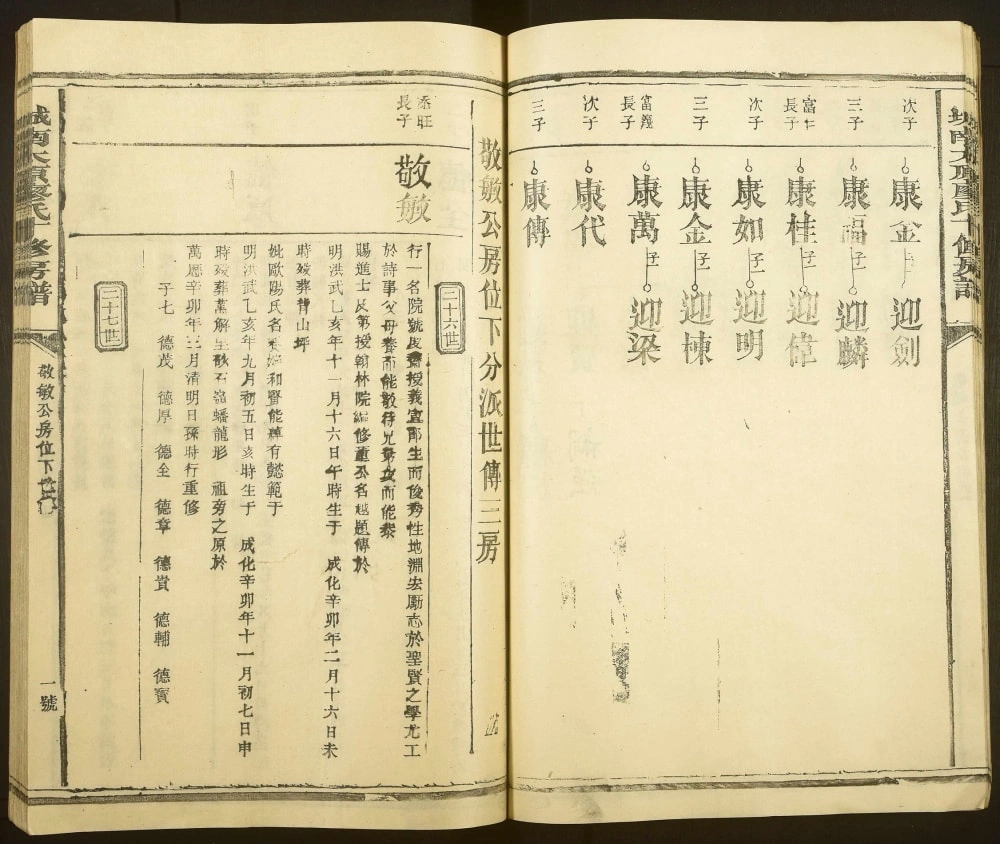 次子
康金
迎劍
三子
康福
子一
迎麟
富仁
長子
康桂
子一
迎偉
次子
康如
子一
迎明
三子
康金
子一
迎棟
富錢
長子
康萬
子一
迎梁
次子
康代
三子
康傳
敬敏公房位下分派世傳三房
二十六世
添旺
長子
敬敏
行一名院號授義宣郎生而俊秀性地淵宏勵志於聖賢之學尤工
於詩事父母養而能敬待兄弟友而能恭
賜進士及第授翰林院編修公名越題傳於
明洪武乙亥年十一月十六日午時生于 成化辛卯年二月十六日未
時歿葬背山坪
妣歐陽氏名和賢能有懿範于
明洪武乙亥年九月初五日亥時生于 成化辛卯年十一月初七日申
時歿葬黨解生蟠龍形 祖旁之原於
萬曆辛卯年三月清明日孫時行重修
子七 德茂 德厚 德全 德章 德貴 德輔 德寶
二十七世
城南太原廖氏十修房譜
敬敏公房位下
一號